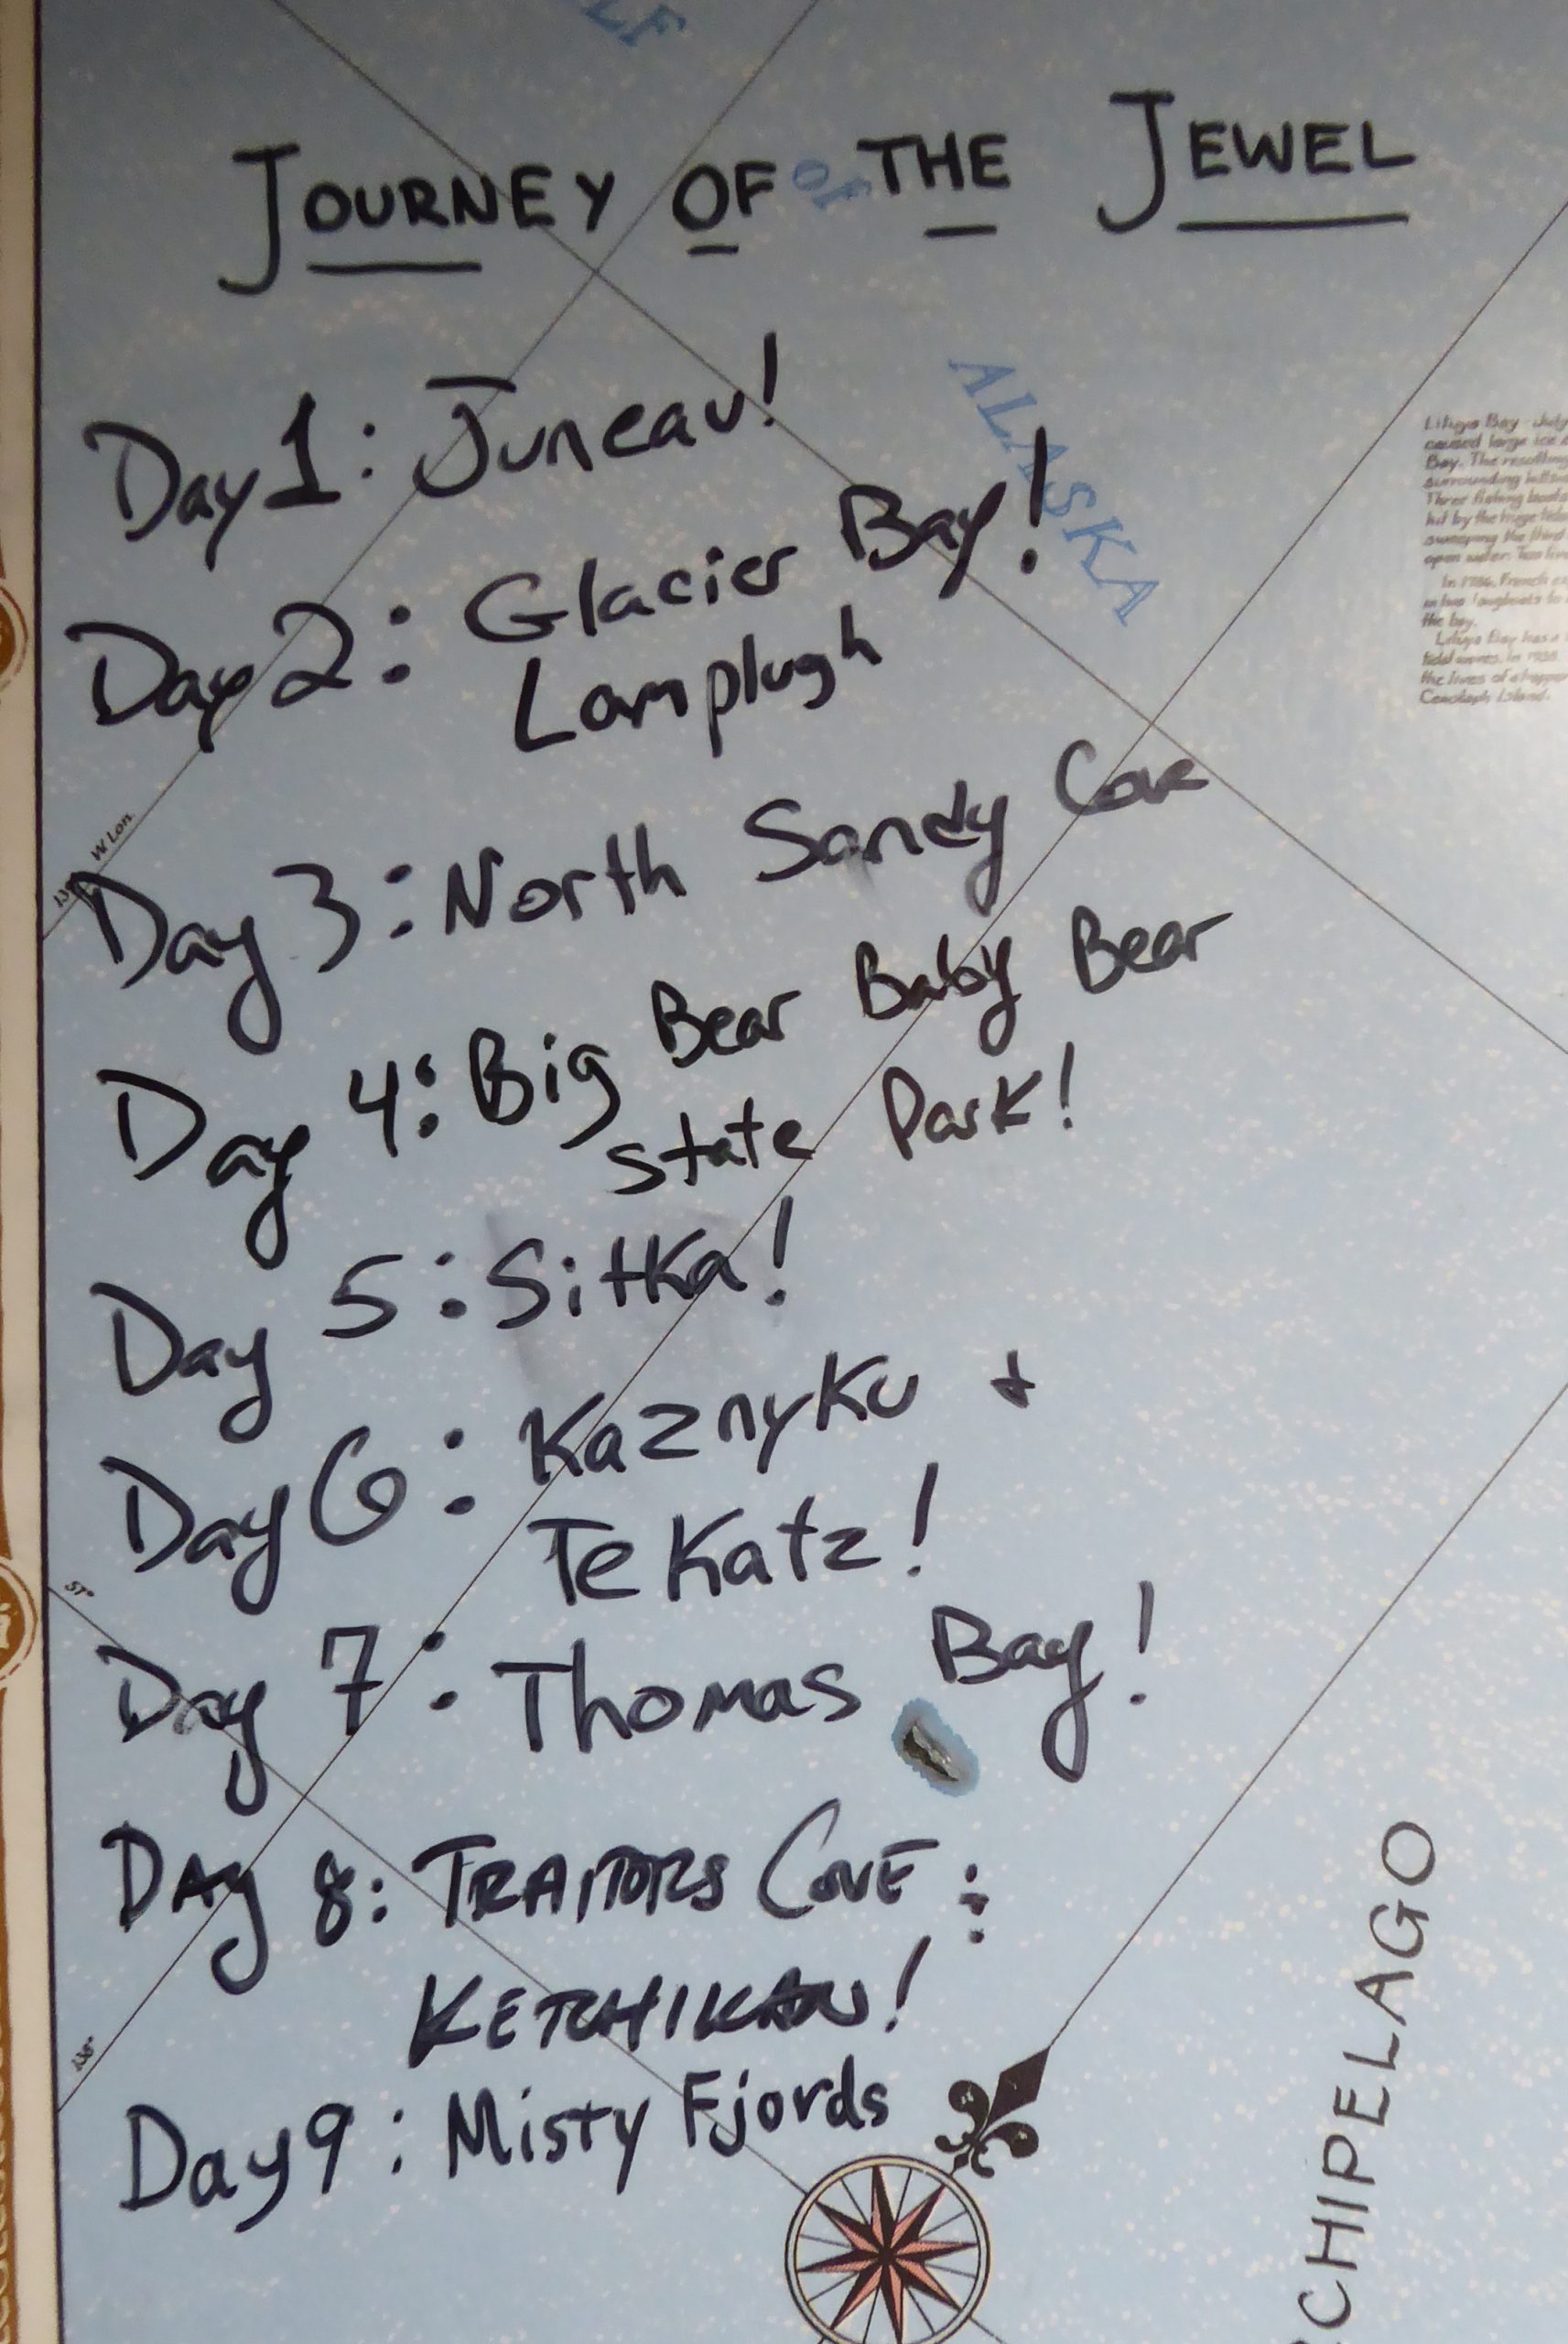 JOURNEY OF THE JEWEL
Day 1: Juneau!
Day 2: Glacier Bay!
Lamplugh
Day 3: North Sandy Cove
Day 4: Big Bear Baby Bear
State Park!
Day 5: Sitka!
Day 6: Kaznyku +
Tekatz!
Day 7: Thomas Bay!
DAy 8: TRAITORS COVE :
KETCHIKAN!
Day 9: Misty Fjords
OF
ALASKA
W Lon.
57°
138°
Lituya Bay - July
caused large ice
Bay. The resulting
surrounding
Three fishing boats
hit by the huge
sweeping the third
open water. Two
In 1786, French
in two longboats to
the bay.
Lituya Bay has a
tidal waves. In 1936,
the lives of a trapper
Cenotaph Island.
CHIPELAGO